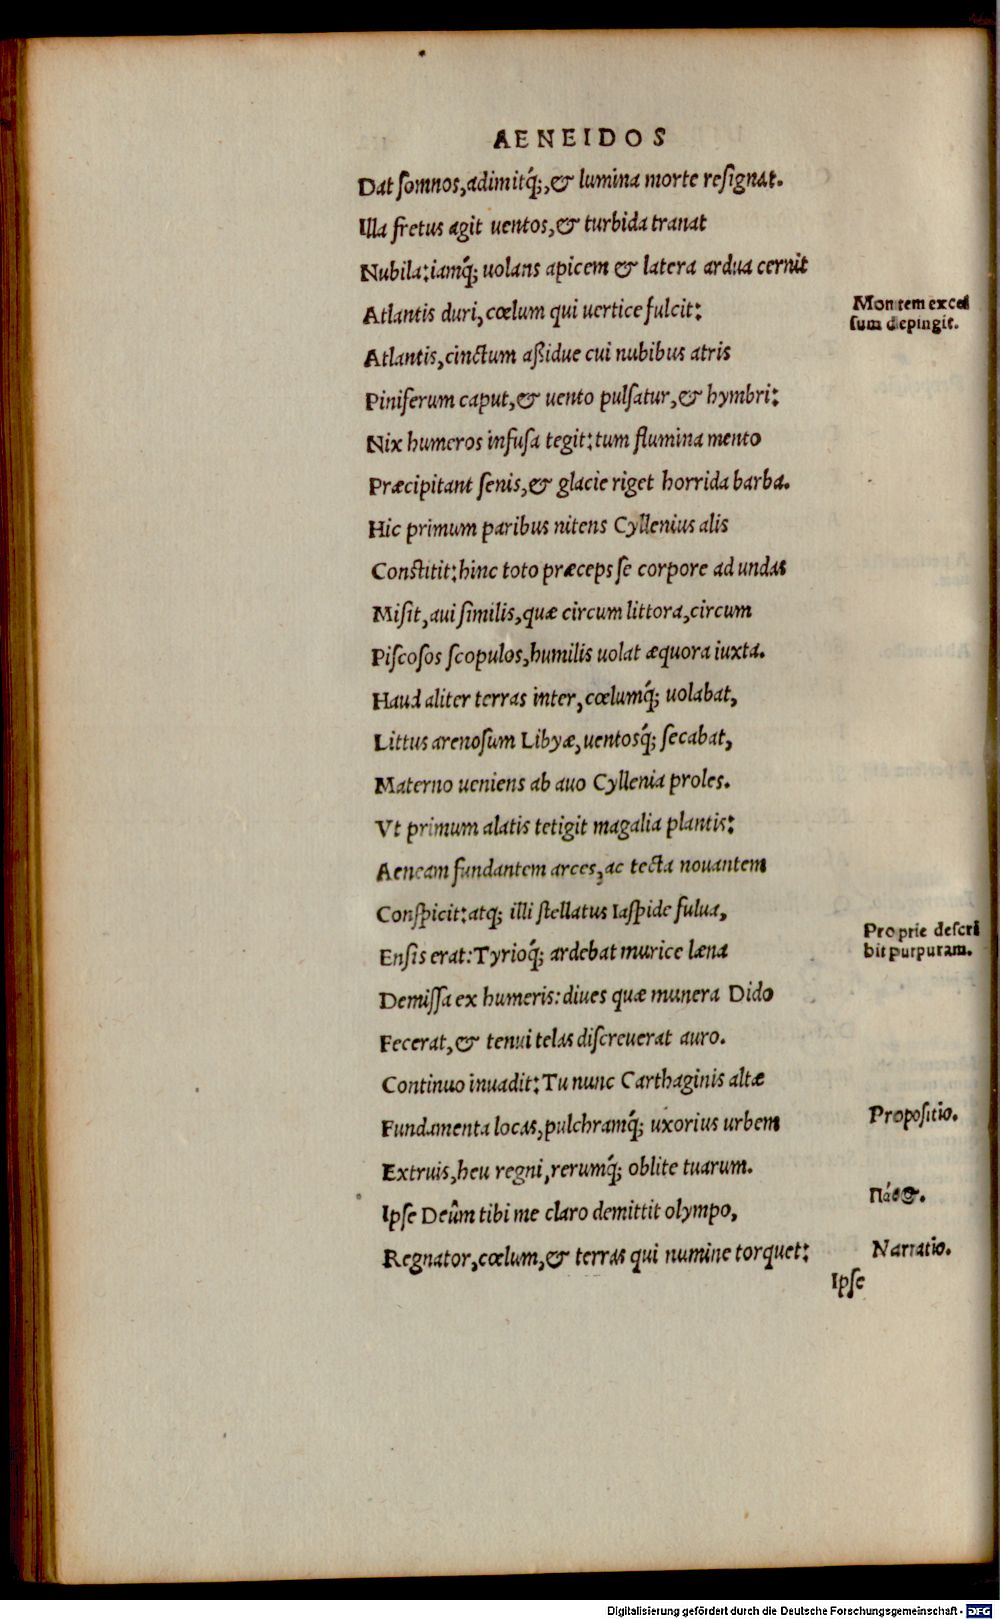 AENEIDOS
Dat ſomnos, adimitq́;, & lumina morte reſignat.
Illa fretus agit uentos, & turbida tranat
Nubila: iamq́; uolans apicem & latera ardua cernit
Atlantis duri, cœlum qui uertice fulcit:
Montem excel
ſum depingit.
Atlantis, cinctum aßidue cui nubibus atris
Piniferum caput, & uento pulſatur, & hymbri:
Nix humeros infuſa tegit: tum flumina mento
Præcipitant ſenis, & glacie riget horrida barba.
Hic primum paribus nitens Cyllenius alis
Conſtitit: hinc toto præceps ſe corpore ad undas
Miſit, aui ſimilis, quæ circum littora, circum
Piſcoſos ſcopulos, humilis uolat æquora iuxta.
Haud aliter terras inter, cœlumq́; uolabat,
Littus arenoſum Libyæ, uentosq́; ſecabat,
Materno ueniens ab auo Cyllenia proles.
Vt primum alatis tetigit magalia plantis:
Aeneam fundantem arces, ac tecta nouantem
Conſpicit: atq; illi ſtellatus Iaſpide fulua,
Enſis erat: Tyrioq́; ardebat murice læna
Proprie deſcri
bit purpuram.
Demiſſa ex humeris: diues quæ munera Dido
Fecerat, & tenui telas diſcreuerat auro.
Continuo inuadit: Tu nunc Carthaginis altæ
Fundamenta locas, pulchramq́; uxorius urbem
Propoſitio.
Extruis, heu regni, rerumq́; oblite tuarum.
Ipſe Deûm tibi me claro demittit olympo,
Regnator, cœlum, & terras qui numine torquet:
Narratio.
Ipſe
Digitalisierung gefördert durch die Deutsche Forschungsgemeinschaft - DFG